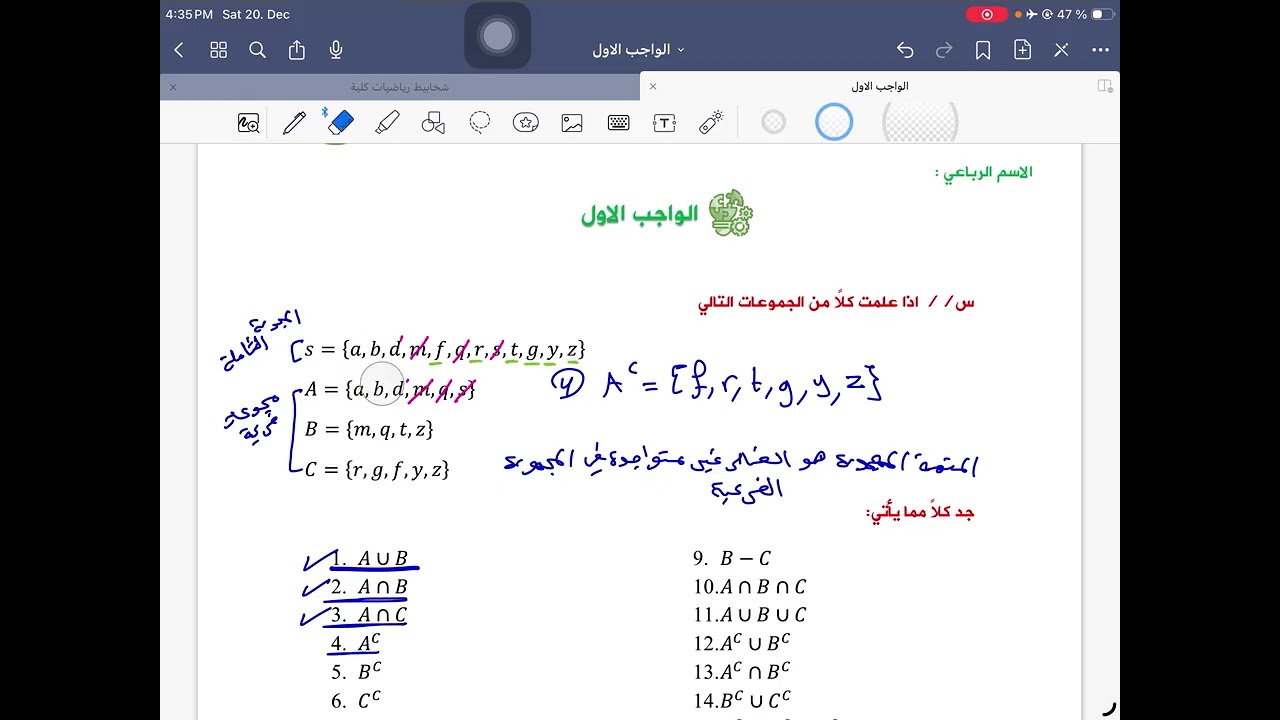 4:35 PM Sat 20. Dec 47 %
الواجب الاول
شخابيط رياضيات كلية
الواجب الاول
الاسم الرباعي :
الواجب الاول
س/ / اذا علمت كلاً من الجموعات التالي
المجموعة الشاملة
s = {a, b, d, m, f, q, r, s, t, g, y, z}
A = {a, b, d, m, q, s}
④ Aᶜ = {f, r, t, g, y, z}
مجموعة
B = {m, q, t, z}
C = {r, g, f, y, z}
المتممة هو العناصر غير متواجدة في المجموعة
الفرعية
جد كلاً مما يأتي:
1. A ∪ B
2. A ∩ B
3. A ∩ C
4. Aᶜ
5. Bᶜ
6. Cᶜ
9. B − C
10. A ∩ B ∩ C
11. A ∪ B ∪ C
12. Aᶜ ∪ Bᶜ
13. Aᶜ ∩ Bᶜ
14. Bᶜ ∪ Cᶜ